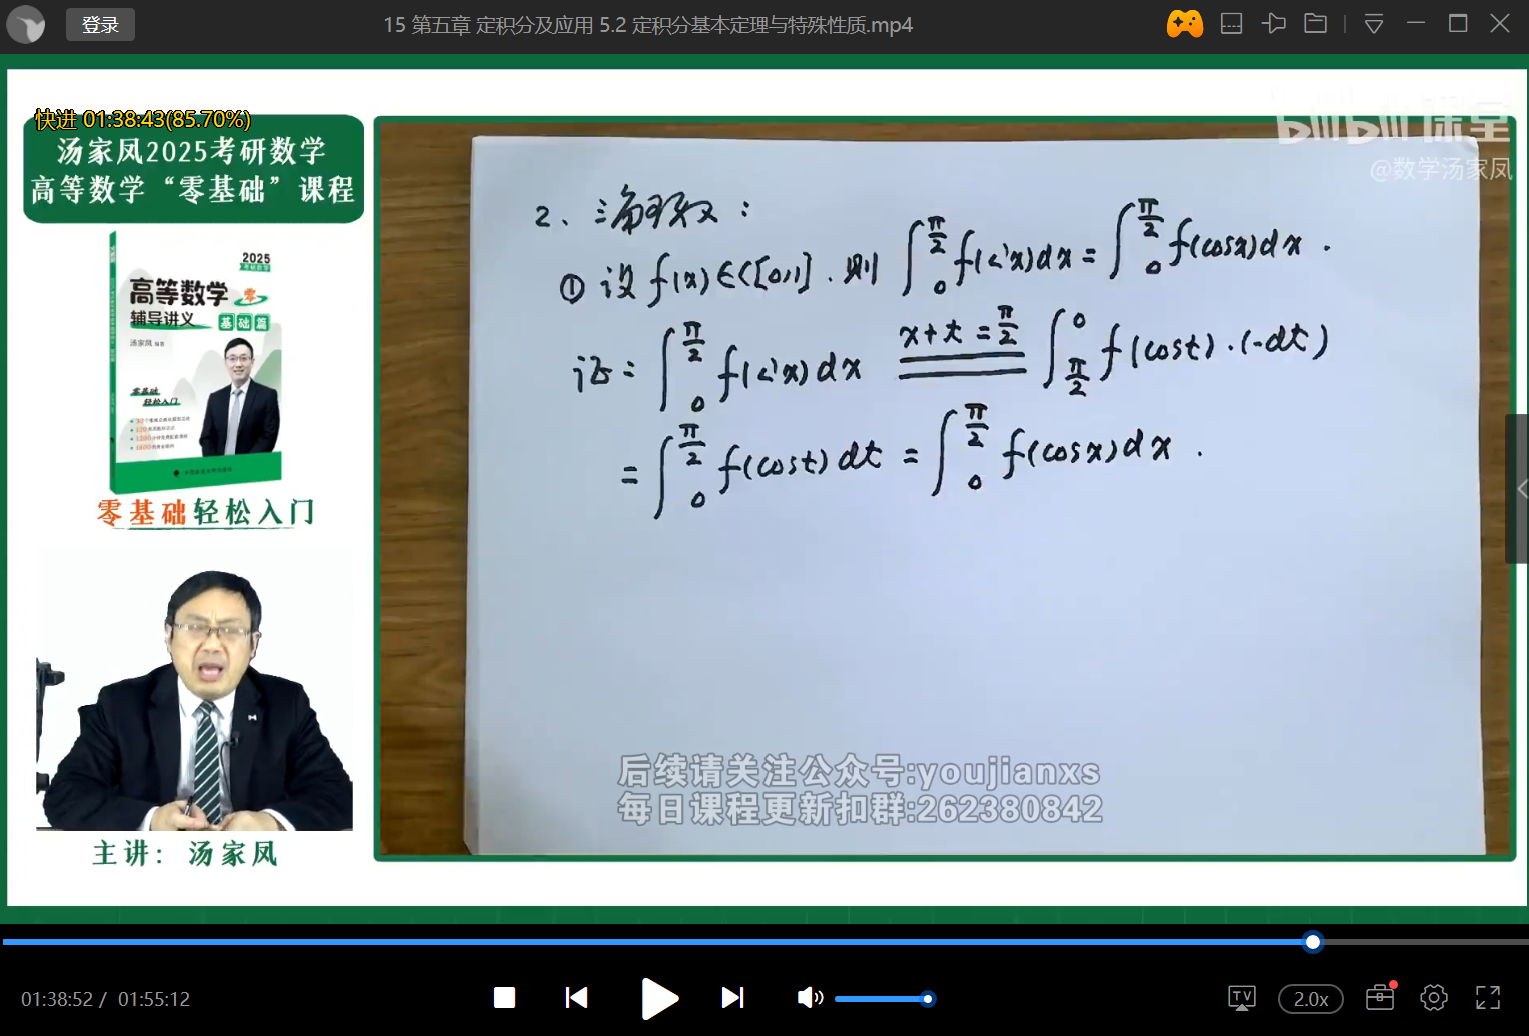 登录
15 第五章 定积分及应用 5.2 定积分基本定理与特殊性质.mp4
快进 01:38:43(85.70%)
汤家凤2025考研数学
高等数学“零基础”课程
2025
高等数学 零
辅导讲义 基础篇
汤家凤 编著
零基础
轻松入门
零基础轻松入门
主讲：汤家凤
bilibili 课堂
@数学汤家凤
2、三角函数：
① 设 f(x)∈C[0,1]. 则 ∫₀^{π/2} f(sin x)dx = ∫₀^{π/2} f(cosx)dx.
证：∫₀^{π/2} f(sin x)dx x+t=π/2 ∫_{π/2}^0 f(cost)·(-dt)
= ∫₀^{π/2} f(cost)dt = ∫₀^{π/2} f(cosx)dx.
后续请关注公众号:youjianxs
每日课程更新扣群:262380842
01:38:52 / 01:55:12
TV
2.0x